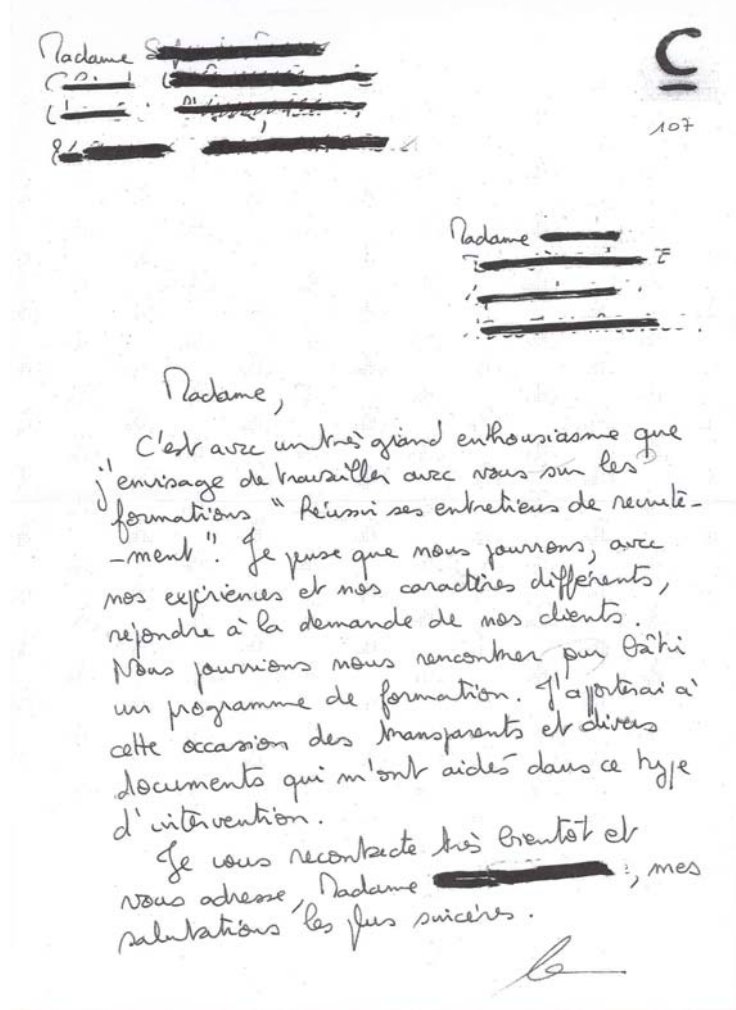 Madame
C
107
Madame
Madame,
C'est avec un très grand enthousiasme que
j'envisage de travailler avec vous sur les
formations "Réussir ses entretiens de recrute-
-ment". Je pense que nous pourrons, avec
nos expériences et nos caractères différents,
répondre à la demande de nos clients.
Nous pourrions nous rencontrer pour bâtir
un programme de formation. J'apporterai à
cette occasion des transparents et divers
documents qui m'ont aidés dans ce type
d'intervention.
Je vous recontacte très bientôt et
vous adresse, Madame , mes
salutations les plus sincères.